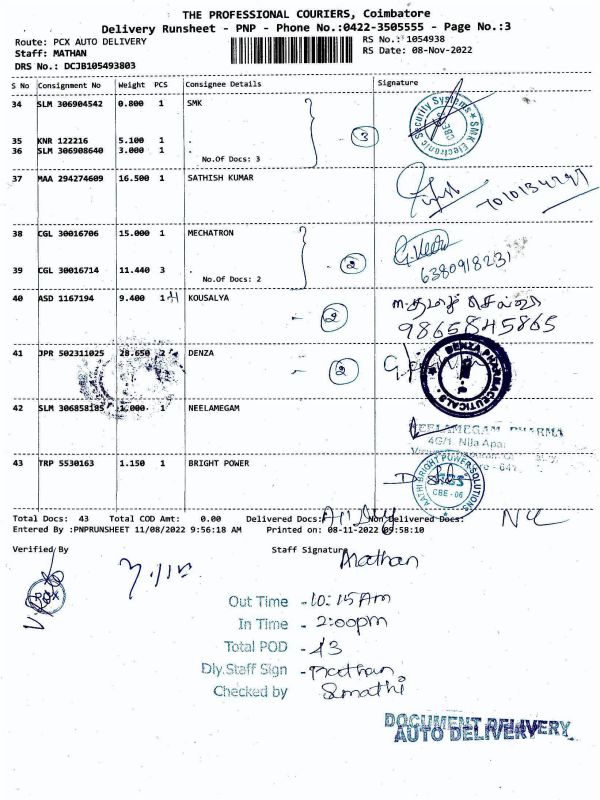 THE PROFESSIONAL COURIERS, Coimbatore
Delivery Runsheet - PNP - Phone No.:0422-3505555 - Page No.:3
Route: PCX AUTO DELIVERY
RS No.: 1054938
Staff: MATHAN
RS Date: 08-Nov-2022
DRS No.: DCJB105493803
S No Consignment No Weight PCS Consignee Details Signature
34 SLM 306904542 0.800 1 SMK
SMK Electronic Security Systems CBE
35 KNR 122216 5.100 1 .
3
36 SLM 306908640 3.000 1 .
No.Of Docs: 3
37 MAA 294274609 16.500 1 SATHISH KUMAR
38 CGL 30016706 15.000 1 MECHATRON
39 CGL 30016714 11.440 3 .
2
6380918231
No.Of Docs: 2
40 ASD 1167194 9.400 1 KOUSALYA
2
9865845865
41 JPR 502311025 28.650 2 DENZA
2
DENZA PHARMACEUTICALS
42 SLM 306858185 1.000 1 NEELAMEGAM
NEELAMEGAM PHARMA
4G/1 Nila Apar
43 TRP 5530163 1.150 1 BRIGHT POWER
AATHI BRIGHT POWER SOLUTIONS
CBE - 06
Total Docs: 43 Total COD Amt: 0.00 Delivered Docs: Non Delivered Docs:
Entered By :PNPRUNSHEET 11/08/2022 9:56:18 AM Printed on: 08-11-2022 09:58:10
Verified By
Staff Signature
Mathan
PCX
Out Time - 10:15 Am
In Time - 2:00pm
Total POD - 43
Dly.Staff Sign - Mathan
Checked by Smathi
DOCUMENT DELIVERY
AUTO DELIVERY